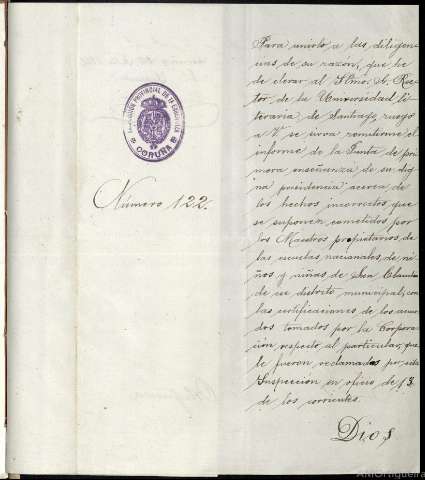 INSPECCIÓN PROVINCIAL DE 1.ª ENSEÑANZA
CORUÑA
Número 122.
Para unirlo a las diligen-
cias de su razon, que he
de elevar al Iltmo. Sr. Rec-
tor de la Universidad li-
teraria de Santiago, ruego
a V. se sirva remitirme el
informe de la Junta de pri-
mera enseñanza de su dig-
na presidencia acerca de
los hechos incorrectos que
se suponen cometidos por
los Maestros propietarios de
las escuelas nacionales de ni-
ños y niñas de San Claudio
de ese distrito municipal, con
las certificaciones de los acuer-
dos tomados por la Corpora-
cion respecto al particular, que
le fueron reclamados por esta
Inspección en oficio de 13
de los corrientes.
Dios
AMOrtigueira